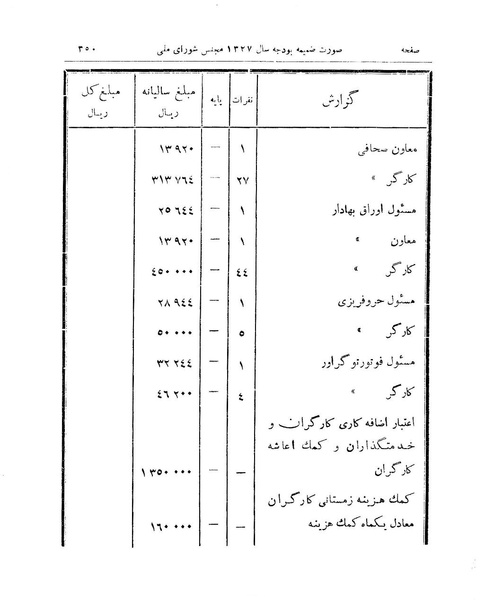 صفحه صورت ضمیمه بودجه سال ۱۳۲۷ مجلس شورای ملی ۳۵۰
گزارش نفرات پایه مبلغ سالیانه ریال مبلغ کل ریال
معاون صحافی ۱ — ۱۳ ۹۲۰
کارگر » ۲۷ — ۳۱۳ ۷۶٤
مسئول اوراق بهادار ۱ — ۲۵ ٦٤٤
معاون » ۱ — ۱۳ ۹۲۰
کارگر » ٤٤ — ٤۵۰ ۰۰۰
مسئول حروفریزی ۱ — ۲۸ ۹٤٤
کارگر » ۵ — ۵۰ ۰۰۰
مسئول فوتورتوگراور ۱ — ۳۲ ۲٤٤
کارگر » ٤ — ٤٦ ۲۰۰
اعتبار اضافه کاری کارگران و
خدمتگذاران و کمک اعاشه
کارگران — — ۱۳۵۰ ۰۰۰
کمک هزینه زمستانی کارگران
معادل یکماه کمک هزینه — — ۱٦۰ ۰۰۰